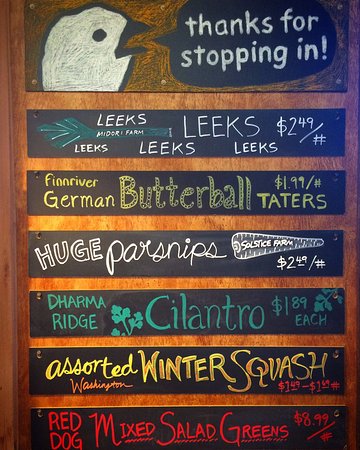 thanks for
stopping in!
LEEKS
MIDORI FARM
LEEKS
LEEKS
LEEKS
LEEKS
$2.49/#
Finnriver
German
Butterball
$1.99/#
TATERS
HUGE parsnips
SOLSTICE FARM
$2.49/#
DHARMA
RIDGE
Cilantro
$1.89
EACH
assorted
Washington
WINTER SQUASH
$1.49-$1.69/#
RED
DOG
MIXED SALAD GREENS
$8.99/#